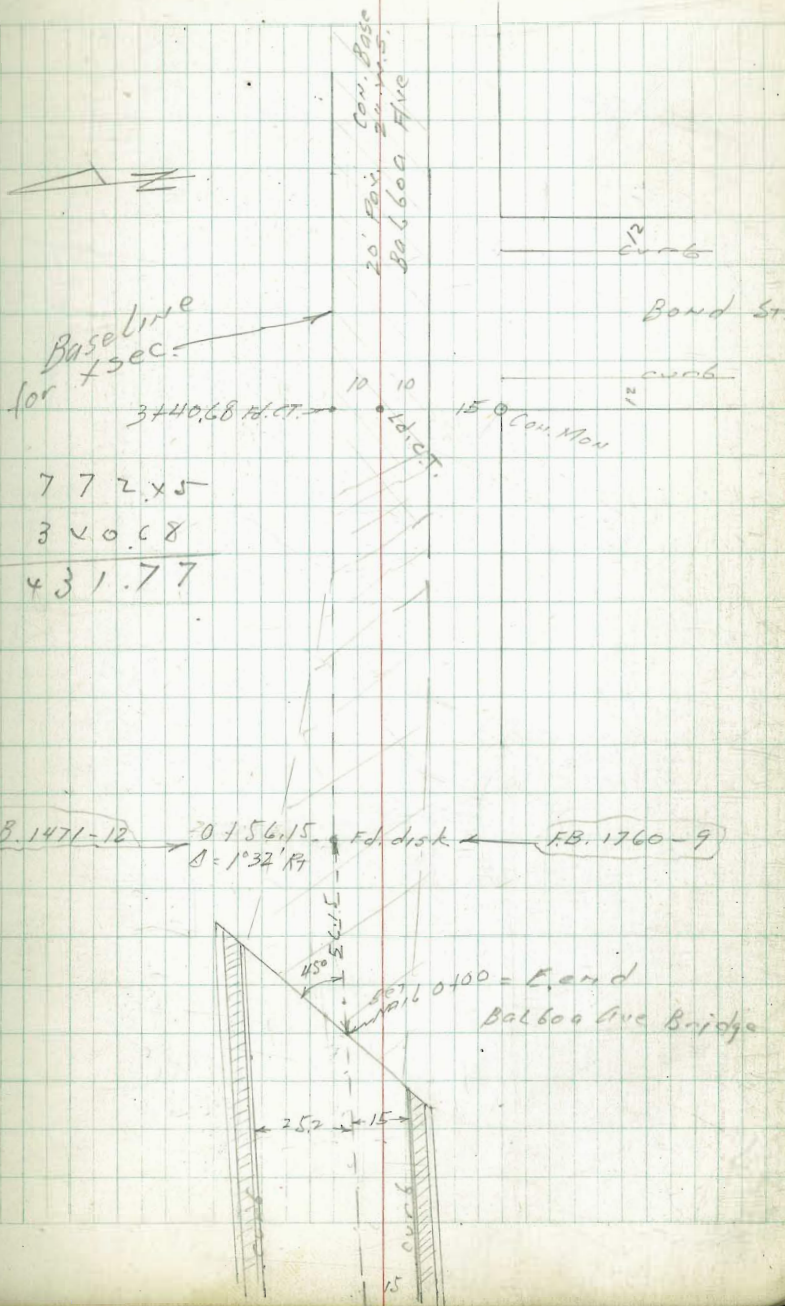 20' Pav. Con. Base
2" W.S.
Balboa Ave
12
curb
Bond St.
curb
12
Baseline
for xsec.
10 10
3+40.68 Fd. C.T.
Ld. C.T.
15
Con. Mon
772.45
340.68
431.77
B. 1471-12
0+56.15
Δ = 1°32' RT
Fd. disk
F.B. 1760-9
56.15
45°
set 0+00 = E. end
Balboa Ave Bridge
25.2
15
curb
curb
15